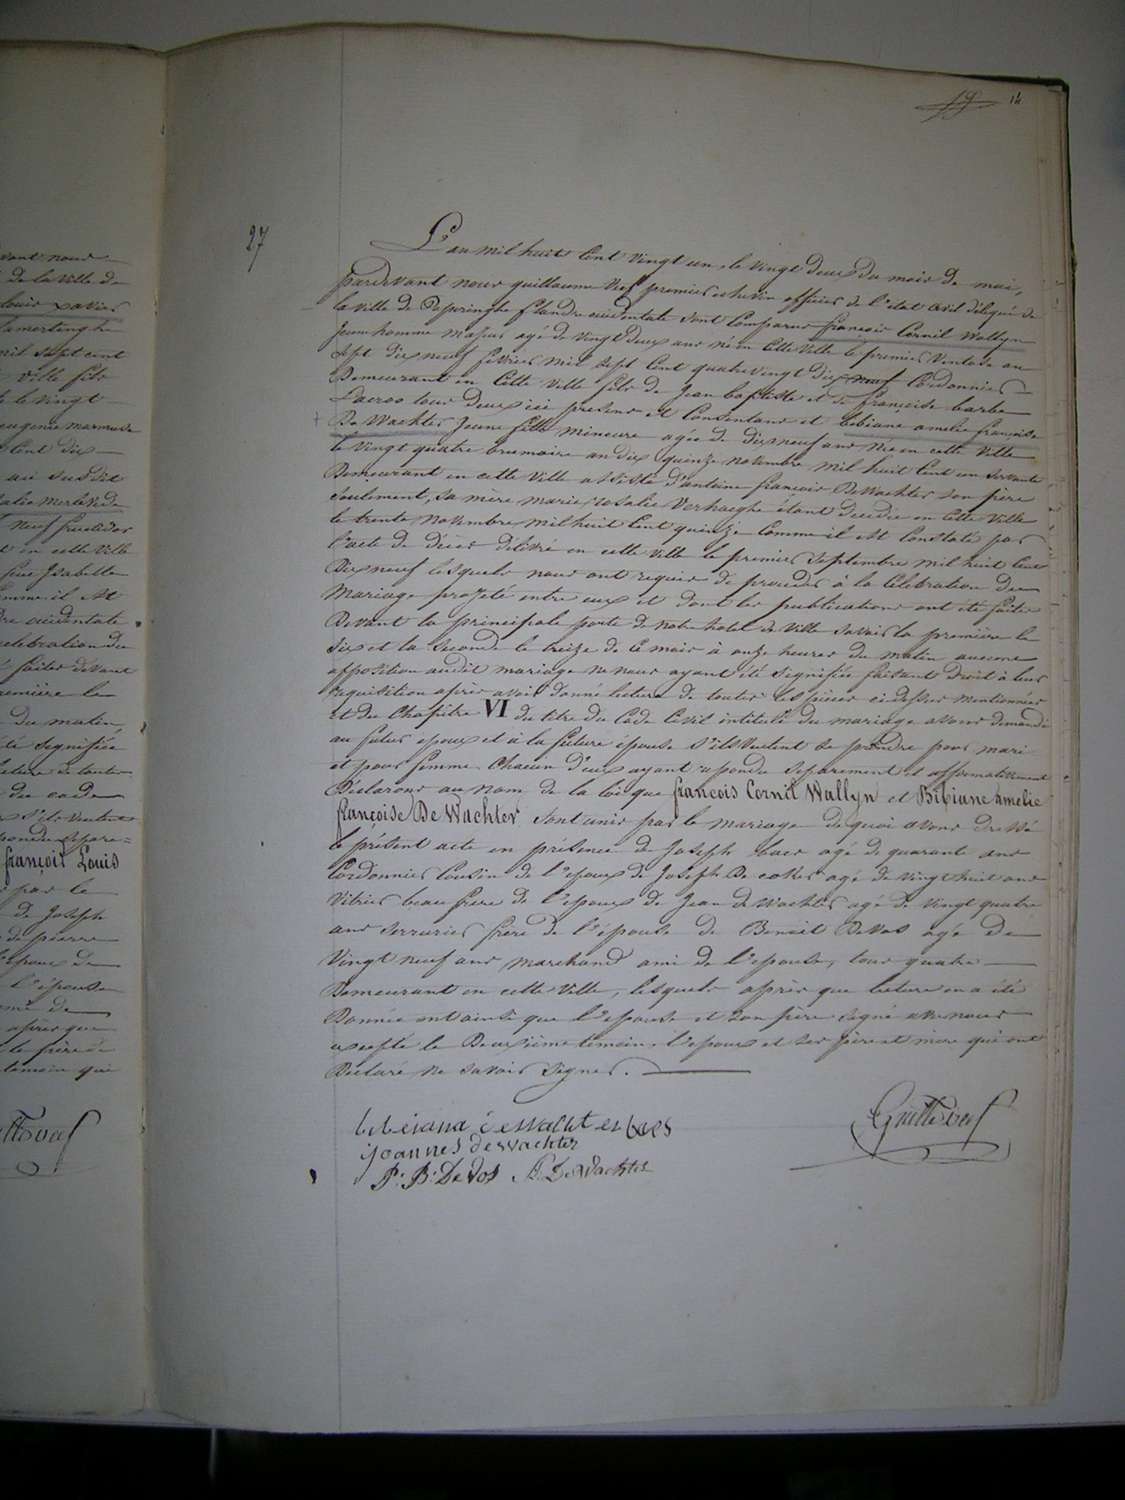 19 14
27
L'an mil huit Cent Vingt un, le Vingt Deux du mois De mai,
pardevant nous guillaume Vos premier echevin officier de l'etat Civil délégué de
la Ville de Popringhe flandre occidentale sont Comparus françois Cornil Wallyn
Jeune homme majeur agé de Vingt Deux ans né en Cette Ville le premier Ventose an
Sept dix neuf fevrier mil sept Cent quatre Vingt dix neuf Cordonnier
Demeurant en Cette Ville fils de Jean baptiste et de françoise barbe
tous Deux ici present et Consentans et bibiane amelie françoise
De Wachter Jeune fille mineure agée de dix neuf ans née en cette Ville
le Vingt quatre brumaire an dix quinze novembre mil huit Cent un servante
Demeurant en cette Ville assistée d'antoine francois DeWachter son père
Seulement, sa mère marie rosalie Verhaeghe étant Décédée en Cette Ville
le trente Novembre mil huit Cent quinze Comme il est Constaté par
l'acte de Décès Délivré en cette Ville le premier Septembre mil huit Cent
Dix neuf lesquels nous ont requis de proceder à la Célébration du
Mariage projeté entre eux et dont les publications ont été faites
Devant la principale porte de notre hotel de Ville Savoir la première le
Six et la Seconde le treize de Ce mois à onze heures du matin aucune
opposition audit mariage ne nous ayant été Signifiée faisant Droit à leur
requisition après avoir donné lecture de toutes les pièces ci dessus mentionnées
et du Chapitre VI du titre du Code Civil intitulé du mariage avons demandé
au futur epoux et à la future épouse s'ils Veulent se prendre pour mari
et pour femme. Chacun D'eux ayant repondu Séparement et affirmativement
Déclarons au nom de la loi que françois Cornil Wallyn et Bibiane amelie
françoise De Wachter Sont unis par le mariage de quoi avons Dressé
le présent acte en présence de Joseph baes agé de quarante ans
Cordonnier Cousin de l'epoux de Joseph De agé de Vingt huit ans
Vitrier beau frère de l'epoux de Jean de Wachter agé de Vingt quatre
ans Serrurier frère de l'épouse de Benoit DeVos agé De
Vingt neuf ans marchand ami de l'epouse, tous quatre
Demeurant en cette Ville, lesquels après que lecture en a été
Donnée ont ainsi que l'epouse et Son père Signé avec nous
excepté le Deuxième temoin, l'epoux et ses père et mère qui ont
Déclaré ne Savoir Signer.
bibiana dewachter baes
joannes dewachter
P: B: De Vos DeWachter
Guill Vos
vant nous
de la Ville de
louis xavier
mil sept cent
Ville fils
le Vingt
Cent dix
au susdit
neuf
en cette Ville
Isabelle
comme il est
occidentale
celebration du
faites devant
première le
du matin,
été Signifiée
lecture de toutes
du code
s'ils Veulent
françois Louis
par le
de Joseph
de pierre
l'epoux de
l'épouse
de
après que
le père de
temoin qui